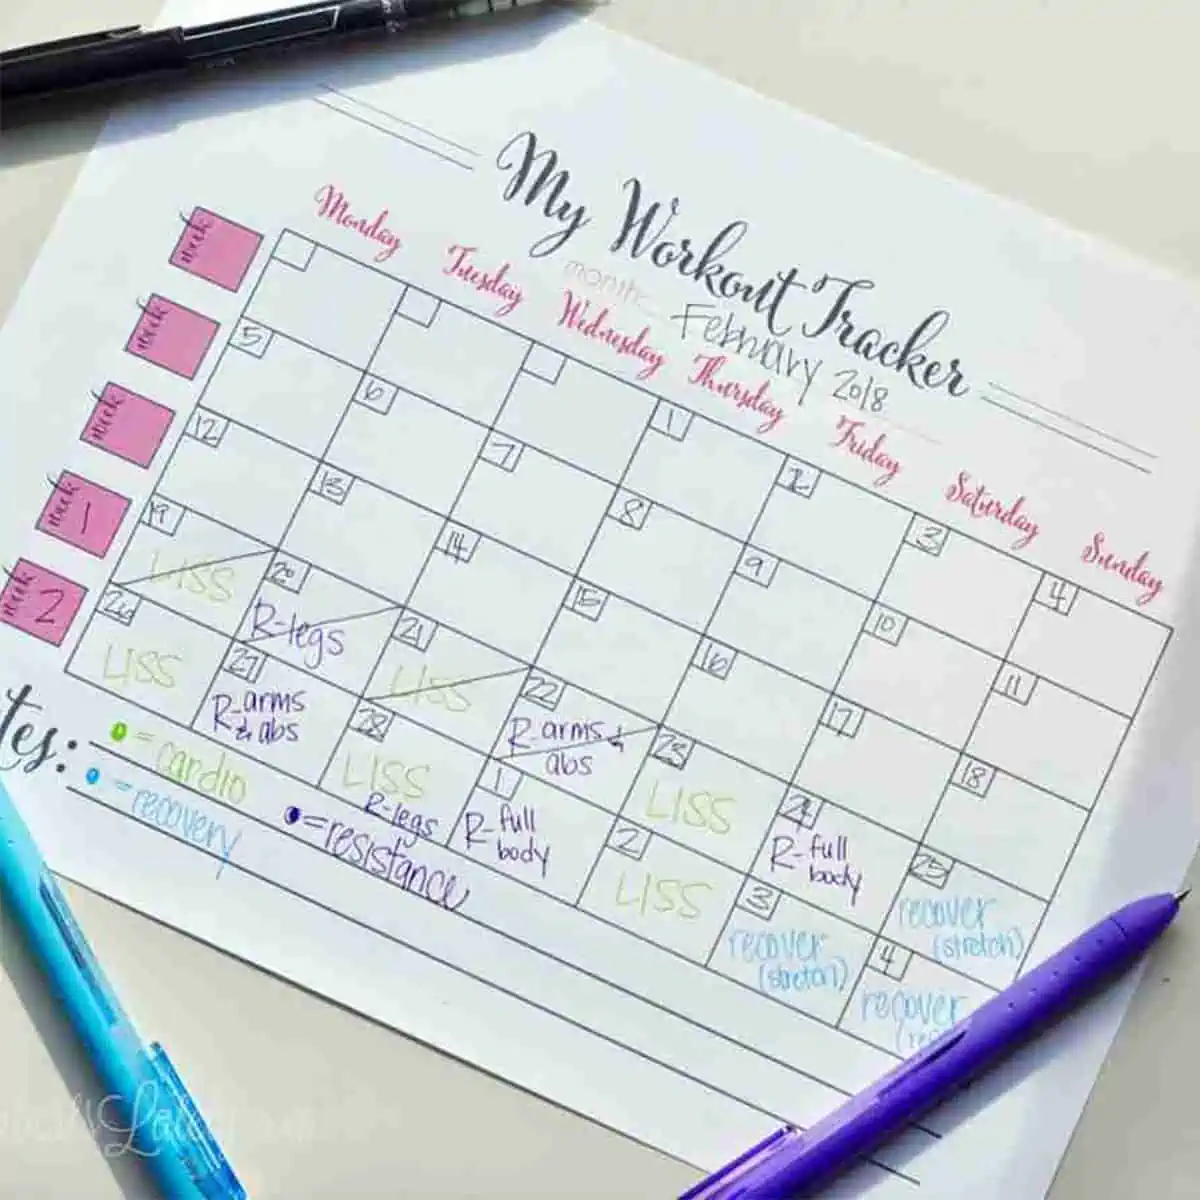 My Workout Tracker
month:
February 2018
Monday Tuesday Wednesday Thursday Friday Saturday Sunday
week
1 2 3 4
week
5 6 7 8 9 10 11
week
12 13 14 15 16 17 18
week 1
19 20 21 22 23 24 25
LISS
R-legs
LISS
R-arms &
abs
LISS
R-full
body
recover
(stretch)
week 2
26 27 28 1 2 3 4
LISS
R-arms
& abs
LISS
R-legs
R-full
body
LISS
recover
(stretch)
recover
= cardio
= recovery
= resistance